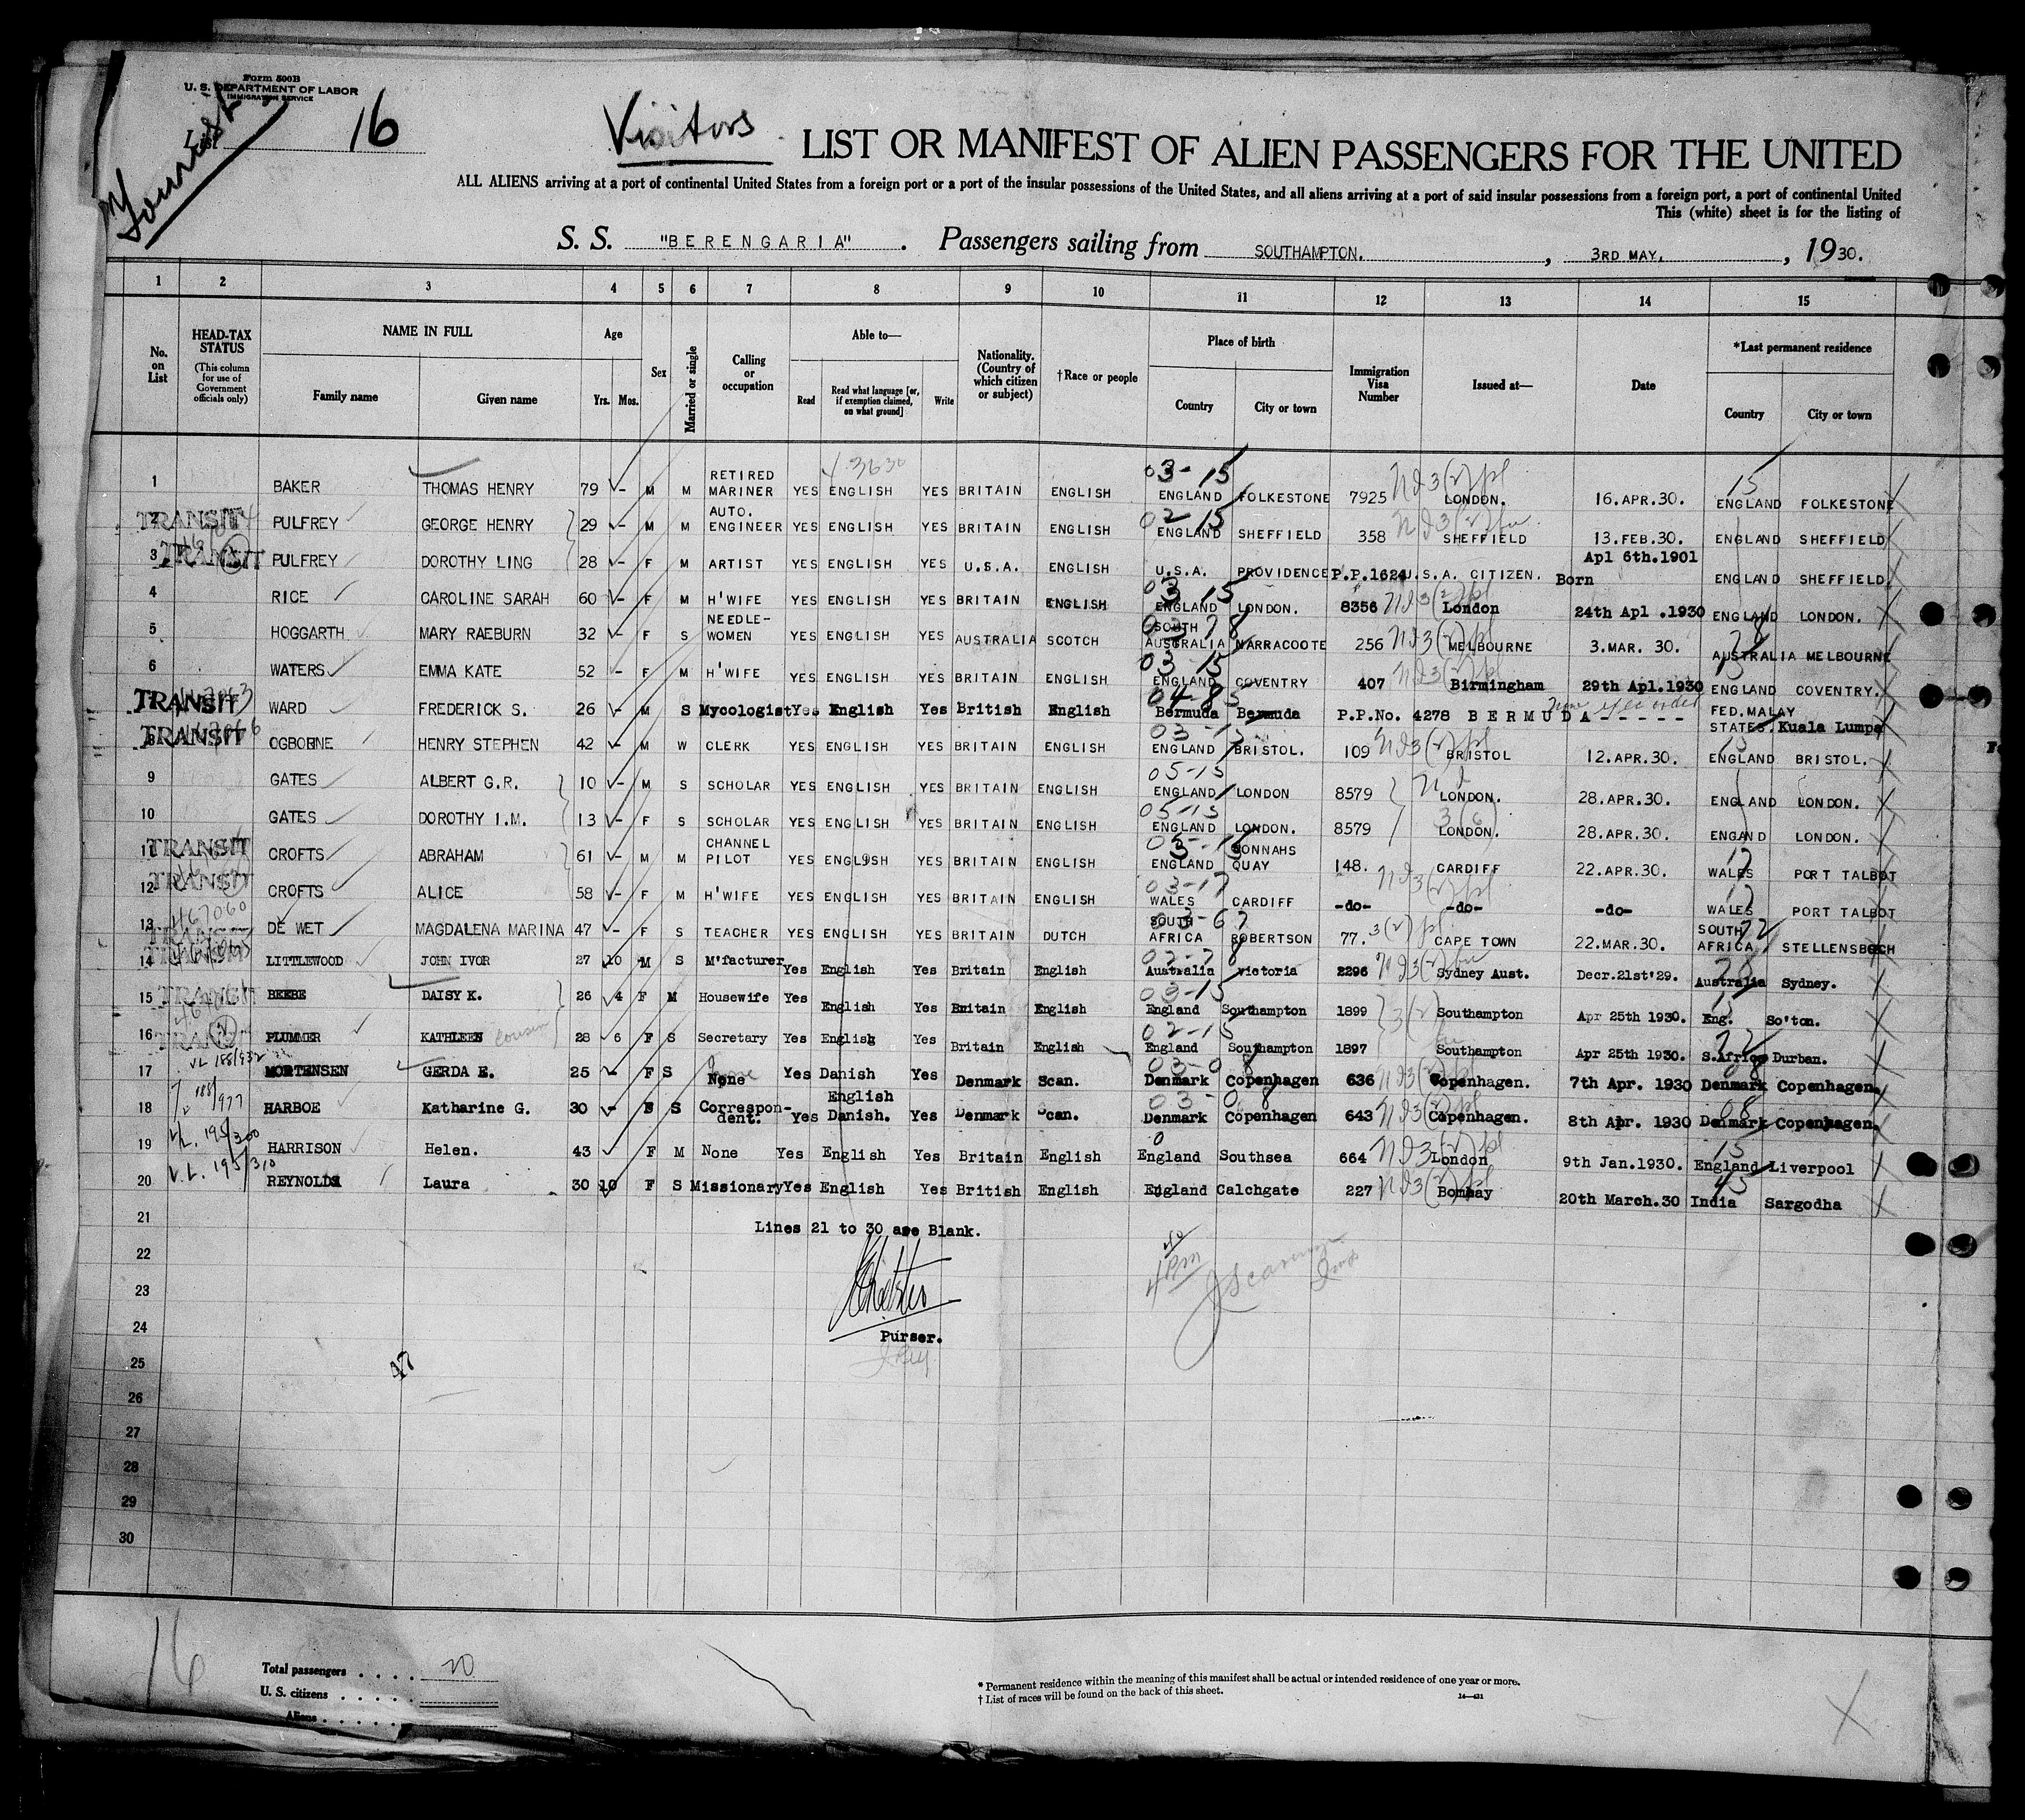 Form 500B
U. S. DEPARTMENT OF LABOR
IMMIGRATION SERVICE
Tourist
List 16
Visitors
LIST OR MANIFEST OF ALIEN PASSENGERS FOR THE UNITED
ALL ALIENS arriving at a port of continental United States from a foreign port or a port of the insular possessions of the United States, and all aliens arriving at a port of said insular possessions from a foreign port, a port of continental United
This (white) sheet is for the listing of
S. S. "BERENGARIA". Passengers sailing from SOUTHAMPTON. , 3RD MAY. , 1930.
1 2 3 4 5 6 7 8 9 10 11 12 13 14 15
No. on List
HEAD-TAX STATUS (This column for use of Government officials only)
NAME IN FULL
Family name Given name
Age
Yrs. Mos.
Sex
Married or single
Calling or occupation
Able to—
Read
Read what language [or, if exemption claimed, on what ground]
Write
Nationality. (Country of which citizen or subject)
†Race or people
Place of birth
Country City or town
Immigration Visa Number
Issued at—
Date
*Last permanent residence
Country City or town
1 BAKER THOMAS HENRY 79 - M M RETIRED MARINER YES ENGLISH YES BRITAIN ENGLISH 03-15 ENGLAND FOLKESTONE 7925 LONDON. 16.APR.30. 15 ENGLAND FOLKESTONE
TRANSIT 2 PULFREY GEORGE HENRY 29 - M M AUTO. ENGINEER YES ENGLISH YES BRITAIN ENGLISH 02-15 ENGLAND SHEFFIELD 358 SHEFFIELD 13.FEB.30. ENGLAND SHEFFIELD
TRANSIT 3 PULFREY DOROTHY LING 28 - F M ARTIST YES ENGLISH YES U.S.A. ENGLISH U.S.A. PROVIDENCE P.P.1624 U.S.A. CITIZEN. Born Apl 6th.1901 ENGLAND SHEFFIELD.
4 RICE CAROLINE SARAH 60 - F M H'WIFE YES ENGLISH YES BRITAIN ENGLISH 03-15 ENGLAND LONDON. 8356 London 24th Apl .1930 ENGLAND LONDON.
5 HOGGARTH MARY RAEBURN 32 - F S NEEDLE-WOMEN YES ENGLISH YES AUSTRALIA SCOTCH SOUTH AUSTRALIA NARRACOOTE 256 MELBOURNE 3.MAR. 30. 78 AUSTRALIA MELBOURNE
6 WATERS EMMA KATE 52 - F M H'WIFE YES ENGLISH YES BRITAIN ENGLISH 03-15 ENGLAND COVENTRY 407 Birmingham 29th Apl.1930 15 ENGLAND COVENTRY.
TRANSIT WARD FREDERICK S. 26 - M S Mycologist Yes English Yes British English 04-85 Bermuda Bermuda P.P.No. 4278 BERMUDA----- FED.MALAY STATES. Kuala Lumpa
TRANSIT 8 OGBORNE HENRY STEPHEN 42 - M W CLERK YES ENGLISH YES BRITAIN ENGLISH 03-15 ENGLAND BRISTOL. 109 BRISTOL 12.APR.30. 15 ENGLAND BRISTOL.
9 GATES ALBERT G.R. 10 - M S SCHOLAR YES ENGLISH YES BRITAIN ENGLISH 05-15 ENGLAND LONDON 8579 LONDON. 28.APR.30. ENGLAND LONDON.
10 GATES DOROTHY I.M. 13 - F S SCHOLAR YES ENGLISH YES BRITAIN ENGLISH 05-15 ENGLAND LONDON. 8579 LONDON. 28.APR.30. ENGAND LONDON.
TRANSIT 11 CROFTS ABRAHAM 61 - M M CHANNEL PILOT YES ENGLISH YES BRITAIN ENGLISH 03-15 ENGLAND CONNAHS QUAY 148. CARDIFF 22.APR.30. 17 WALES PORT TALBOT
TRANSIT 12 CROFTS ALICE 58 - F M H'WIFE YES ENGLISH YES BRITAIN ENGLISH 03-17 WALES CARDIFF -do- -do- -do- 17 WALES PORT TALBOT
TRANSIT 467060 13 DE WET MAGDALENA MARINA 47 - F S TEACHER YES ENGLISH YES BRITAIN DUTCH 03-67 SOUTH AFRICA ROBERTSON 77. CAPE TOWN 22.MAR.30. SOUTH AFRICA STELLENSBOCH
TRANSIT 14 LITTLEWOOD JOHN IVOR 27 10 M S M'facturer Yes English Yes Britain English 02-78 Australia Victoria 2296 Sydney Aust. Decr.21st'29. 78 Australia Sydney.
TRANSIT 15 BEEBE DAISY K. 26 4 F M Housewife Yes English Yes Britain English 03-15 England Southampton 1899 Southampton Apr 25th 1930. 15 Eng. So'ton.
TRANSIT 16 PLUMMER KATHLEEN cousin 28 6 F S Secretary Yes English Yes Britain English 02-15 England Southampton 1897 Southampton Apr 25th 1930. S.Africa Durban.
VL 188/932
17 MORTENSEN GERDA E. 25 - F S None Yes Danish Yes Denmark Scan. 03-08 Denmark Copenhagen 636 Copenhagen. 7th Apr. 1930 08 Denmark Copenhagen.
188/977
18 HARBOE Katharine G. 30 - F S Correspon-dent. Yes English Danish. Yes Denmark Scan. 03-08 Denmark Copenhagen 643 Copenhagen. 8th Apr. 1930 08 Denmark Copenhagen.
V.L. 195/300
19 HARRISON Helen. 43 F M None Yes English Yes Britain English England Southsea 664 London 9th Jan.1930. 15 England Liverpool
V.L. 195/310
20 REYNOLDS Laura 30 10 F S Missionary Yes English Yes British English England Calchgate 227 Bombay 20th March.30 India Sargodha
21
Lines 21 to 30 are Blank.
22
23
24
Purser.
25
47
26
27
28
29
30
16
Total passengers . . . . 20
U. S. citizens . . . . .
Aliens . . . . .
* Permanent residence within the meaning of this manifest shall be actual or intended residence of one year or more.
† List of races will be found on the back of this sheet.
14—421